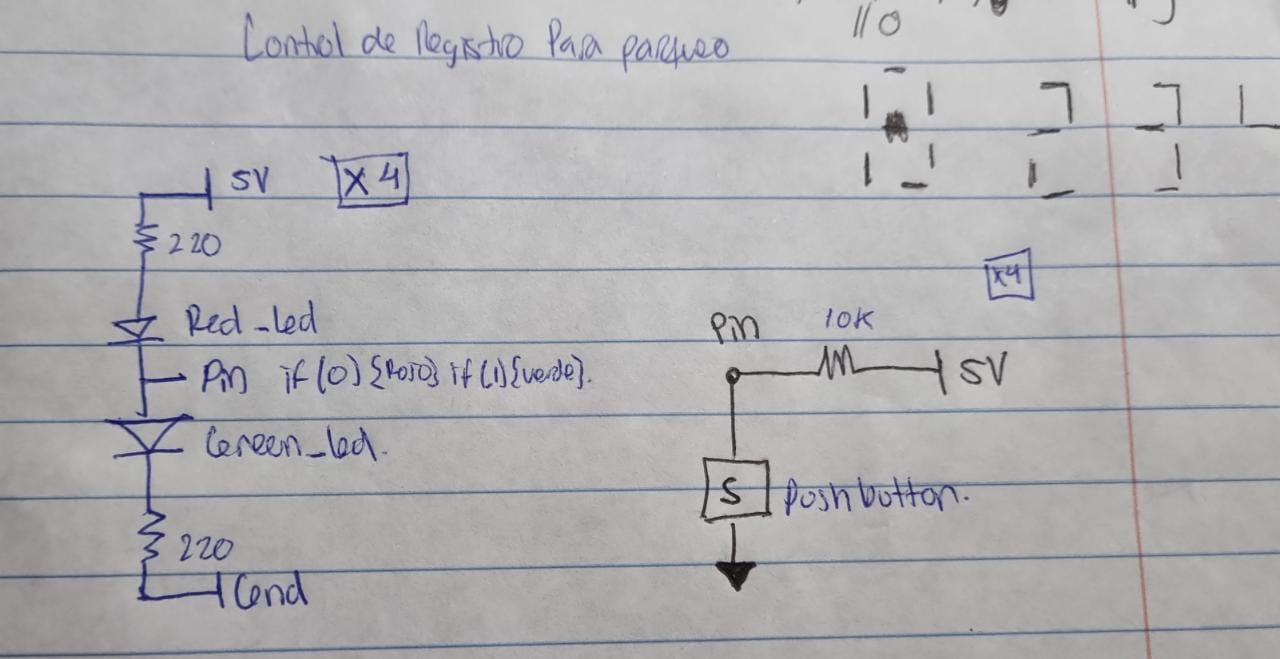 Control de Registro Para parqueo
110
5V
X4
220
Red_led
Pin if(0){Rojo} if(1){verde}.
Green_led.
220
Gnd
X4
Pin
10K
5V
S
Push button.